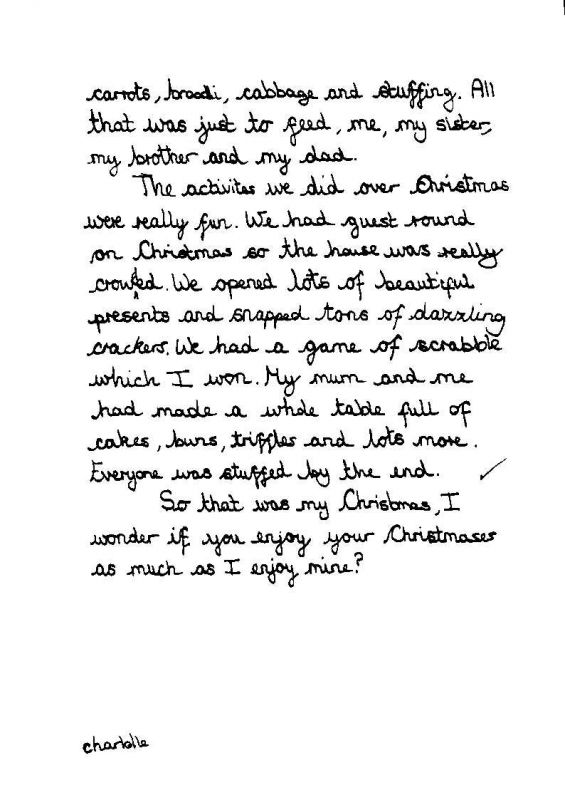 carrots, brocoli, cabbage and stuffing. All
that was just to feed, me, my sister,
my brother and my dad.
The activites we did over Christmas
were really fun. We had guest round
on Christmas so the house was really
crowded. We opened lots of beautiful
presents and snapped tons of dazzling
crackers. We had a game of scrabble
which I won. My mum and me
had made a whole table full of
cakes, buns, triffles and lots more.
Everyone was stuffed by the end.
So that was my Christmas, I
wonder if you enjoy your Christmases
as much as I enjoy mine?
charlotte